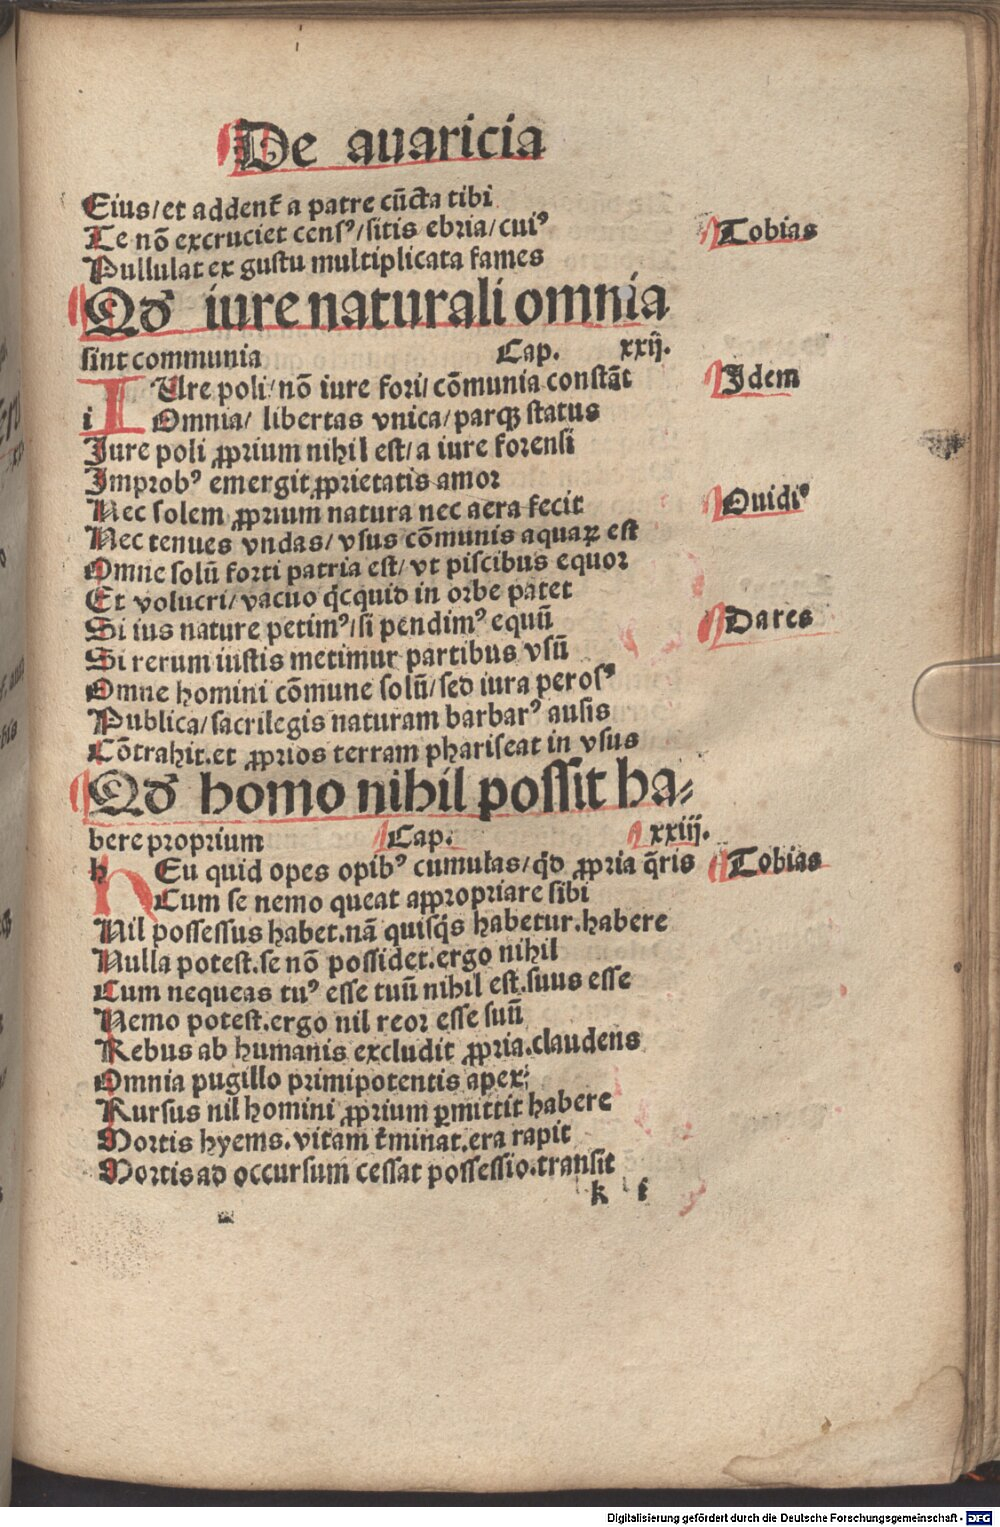 De auaricia
Eius/et addent̄ a patre cūcta tibi
Te nō excruciet censꝰ/sitis ebria/cuiꝰ
Tobias
Pullulat ex gustu multiplicata fames
Qd iure naturali omnia
sint communia Cap. xxij.
IUre poli/nō iure fori/cōmunia constāt
Idem
i Omnia/ libertas vnica/parqꝫ status
Iure poli ꝓprium nihil est/a iure forensi
Improbꝰ emergit ꝓprietatis amor
Nec solem ꝓprium natura nec aera fecit
Ouidiꝰ
Nec tenues vndas/vsus cōmunis aquaꝝ est
Omne solū forti patria est/vt piscibus equor
Et volucri/vacuo qͥcquid in orbe patet
Si ius nature petimꝰ/si pendimꝰ equū
Dares
Si rerum iustis metimur partibus vsū
Omne homini cōmune solū/sed iura perosꝰ
Publica/sacrilegis naturam barbarꝰ ausis
Cōtrahit.et ꝓprios terram phariseat in vsus
Qd homo nihil possit ha⸗
bere proprium Cap. xxiij.
h Eu quid opes opibꝰ cumulas/qd̄ ꝓpria q̄ris
Tobias
Cum se nemo queat appropriare sibi
Nil possessus habet.nā quisqͥs habetur.habere
Nulla potest.se nō possidet.ergo nihil
Cum nequeas tuꝰ esse tuū nihil est.suus esse
Nemo potest.ergo nil reor esse suū
Rebus ab humanis excludit ꝓpria.claudens
Omnia pugillo primipotentis apex:
Rursus nil homini ꝓprium ꝑmittit habere
Mortis hyems.vitam t̄minat.era rapit
Mortis ad occursum cessat possessio.transit
k i
Digitalisierung gefördert durch die Deutsche Forschungsgemeinschaft - DFG